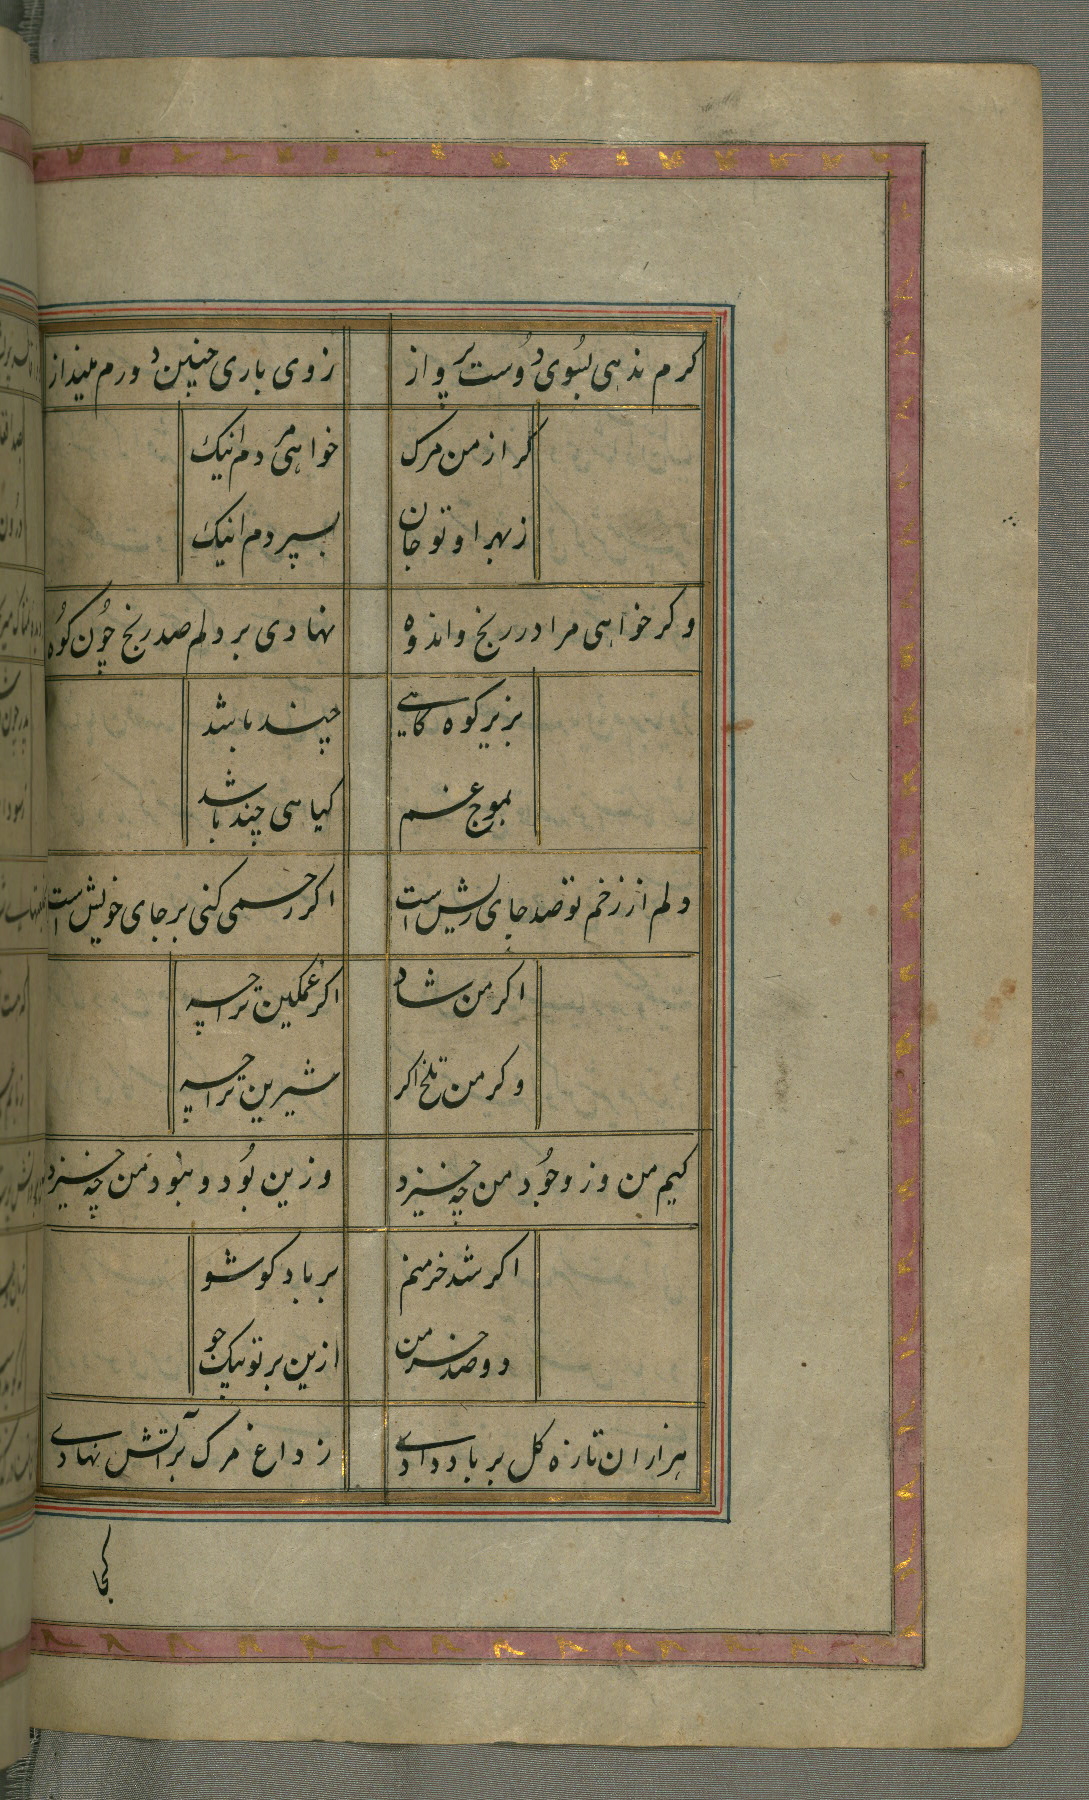 کرم ندهی بسوی دوست پرواز ز وی باری چنین دورم مینداز
کر از من مرک خواهی مردم اینک
ز بهر او تو جان بسپردم اینک
وکر خواهی مرا در رنج و اندوه نهادی بر دلم صد رنج چون کوه
بزیر کوه کاهی چند باشد
بموج غم کیاهی چند باشد
دلم از زخم تو صد جای ریش است اکر رحمی کنی بر جای خویش است
اکر من شاد اکر غمکین ترا چه
وکر من تلخ اکر شیرین ترا چه
کیم من وز وجود من چه خیزد وزین بود و نبود من چه خیزد
اکر شد خرمنم بر باد کو شو
دو صد خرمن ازین بر تو بیک جو
هزاران تازه کل بر باد دادی ز داغ مرک بر آتش نهادی
کجا